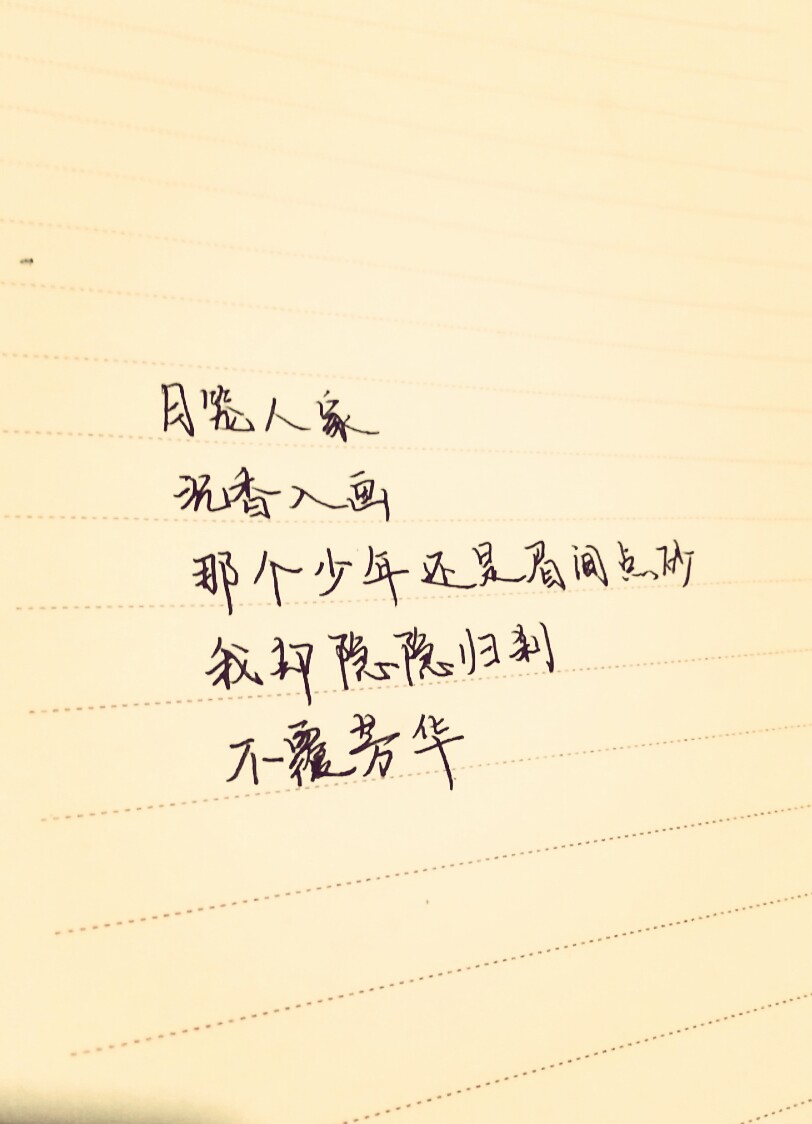 月笼人家
沉香入画
那个少年还是眉间点砂
我却隐隐归刹
不覆芳华